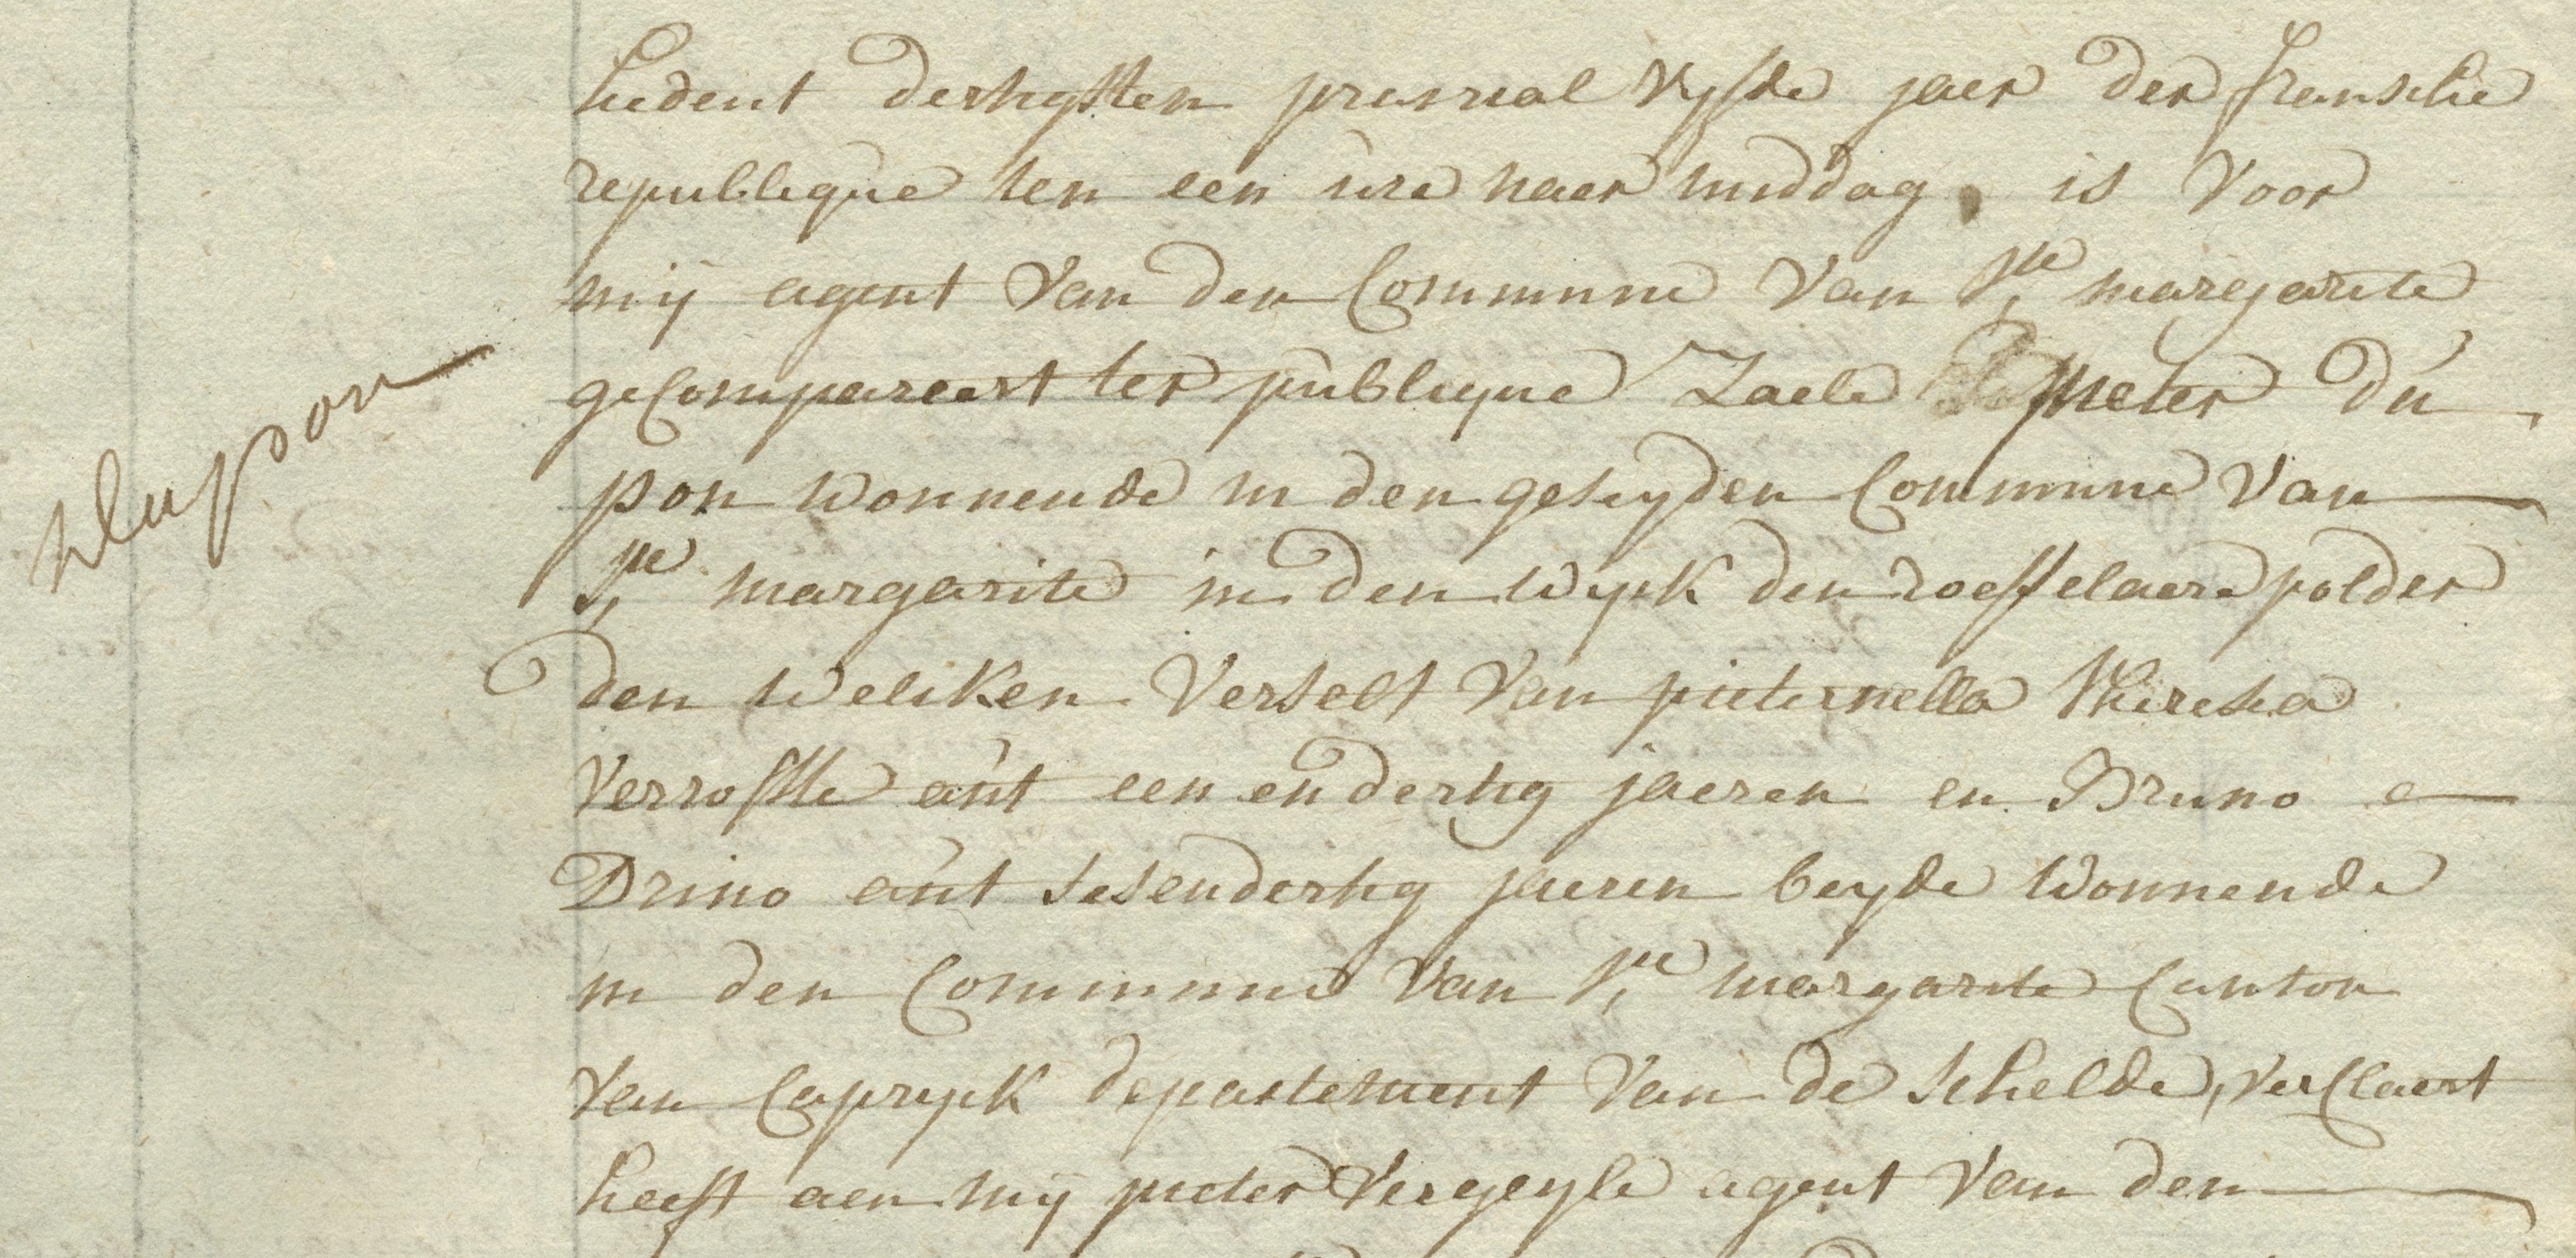 hedent dertighsten prarial vyfde jaer der fransche
republique ten een ure naer middag, is voor
mij agent van den Commune van Ste margarite
geCompareert ter publique Zaele pieter du
dupon
pon wonnende in den geseyden Commune van
Ste margarite in den wyk den roeffelaere polder
den weliken verselt van pieternella theresia
verrostte out een en dertig jaeren en Bruno
Drino out sesendertig jaeren beyde wonnende
in den Commune van Ste margarite Canton
van Capryck departement van de schelde, verClaert
heeft aen mij pieter vergeyle agent van den